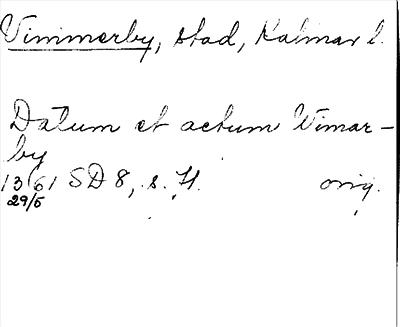 Vimmerby, stad, Kalmar l.
Datum et actum Wimar-
by
1361 SD 8, s. orig.
29/5